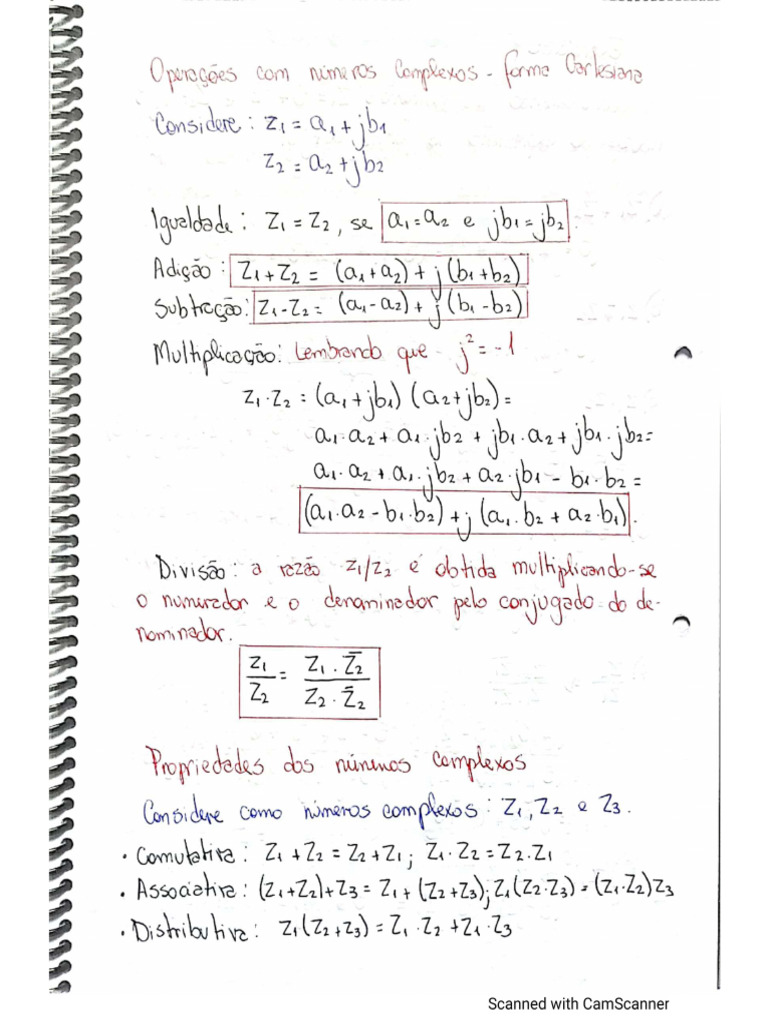 Operações com números complexos - forma Cartesiana
Considere: z₁ = a₁ + jb₁
z₂ = a₂ + jb₂
Igualdade: z₁ = z₂, se a₁ = a₂ e jb₁ = jb₂.
Adição: z₁ + z₂ = (a₁ + a₂) + j(b₁ + b₂)
Subtração: z₁ - z₂ = (a₁ - a₂) + j(b₁ - b₂)
Multiplicação: Lembrando que j² = -1
z₁·z₂ = (a₁ + jb₁)(a₂ + jb₂) =
a₁·a₂ + a₁·jb₂ + jb₁·a₂ + jb₁·jb₂ =
a₁·a₂ + a₁·jb₂ + a₂·jb₁ - b₁·b₂ =
(a₁·a₂ - b₁·b₂) + j(a₁·b₂ + a₂·b₁).
Divisão: a razão z₁/z₂ é obtida multiplicando-se
o numerador e o denominador pelo conjugado do de-
nominador.
z₁/z₂ = z₁·z̄₂/z₂·z̄₂
Propriedades dos números complexos
Considere como números complexos: z₁, z₂ e z₃.
• Comutativa: z₁ + z₂ = z₂ + z₁; z₁·z₂ = z₂·z₁
• Associativa: (z₁+z₂)+z₃ = z₁+(z₂+z₃); z₁(z₂·z₃) = (z₁·z₂)z₃
• Distributiva: z₁(z₂+z₃) = z₁·z₂ + z₁·z₃
Scanned with CamScanner